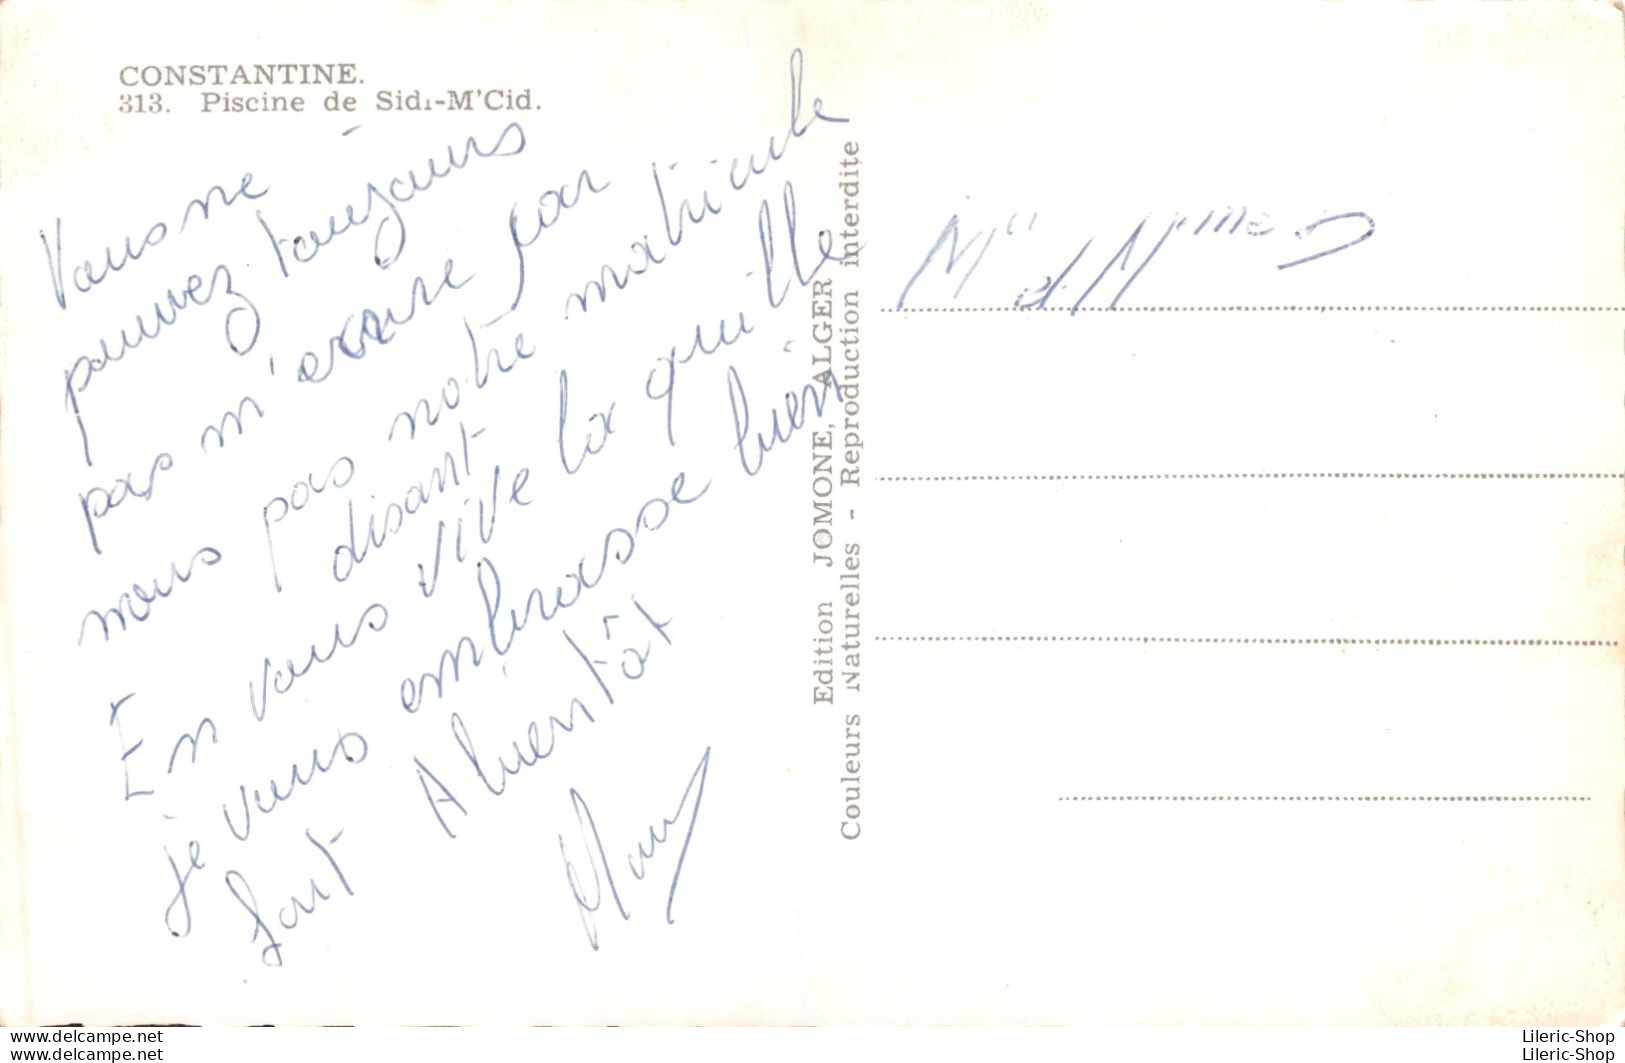 CONSTANTINE.
313. Piscine de Sidi-M'Cid.
Vous ne
pouvez toujours
pas m'ecrire car
nous pas notre matricule
En vous disant vive la quille
je vous embrasse bien
fort A bientôt
Edition JOMONE, ALGER
Couleurs Naturelles - Reproduction interdite
Mr et Mme D
delcampe.net
Lileric-Shop
delcampe.net
Lileric-Shop